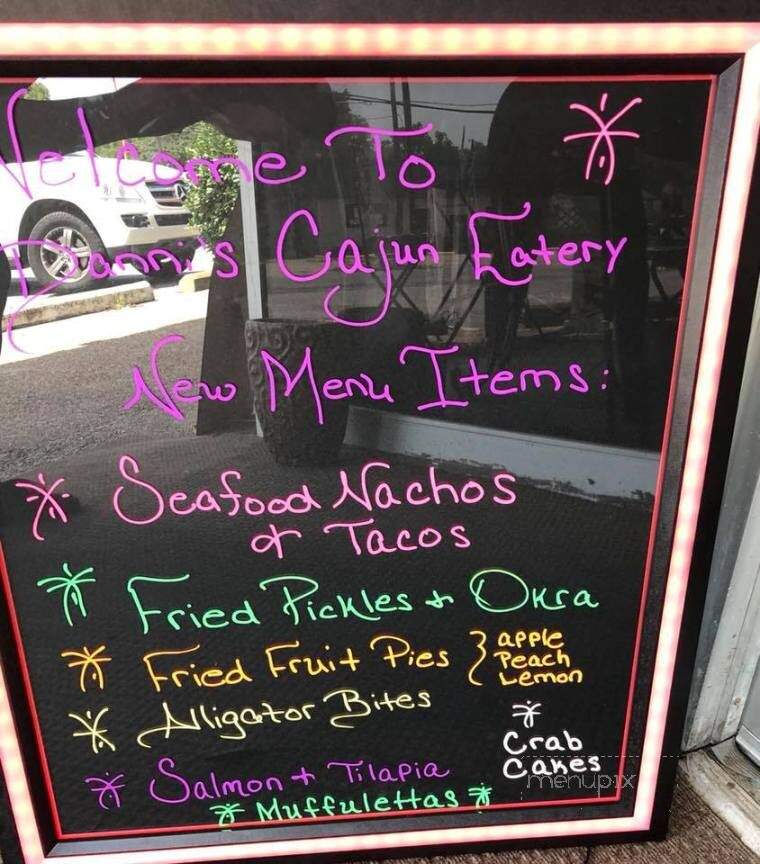 Welcome To
Danni's Cajun Eatery
New Menu Items:
Seafood Nachos
& Tacos
Fried Pickles & Okra
Fried Fruit Pies } apple
Peach
Lemon
Alligator Bites
Crab
Cakes
Salmon + Tilapia
Muffulettas
menupix